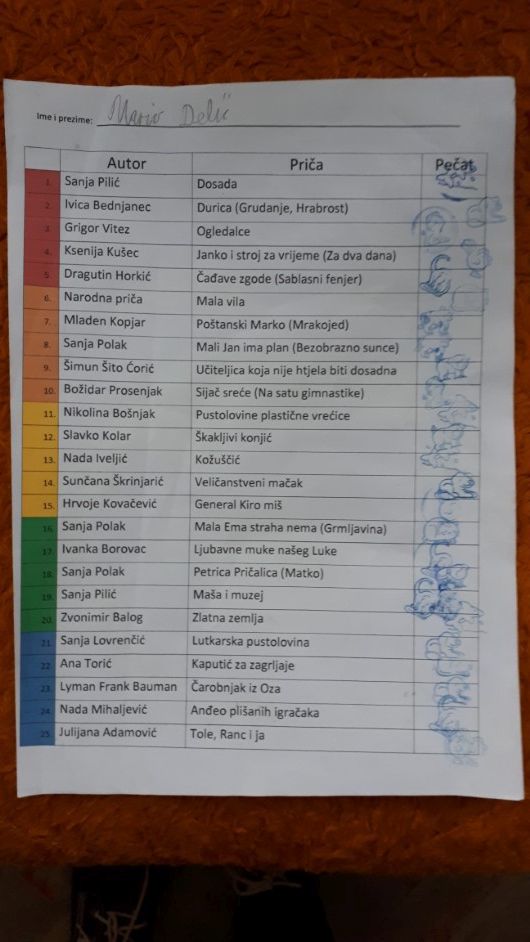 Ime i prezime: Mario Delić
Autor Priča Pečat
1. Sanja Pilić Dosada
2. Ivica Bednjanec Durica (Grudanje, Hrabrost)
3. Grigor Vitez Ogledalce
4. Ksenija Kušec Janko i stroj za vrijeme (Za dva dana)
5. Dragutin Horkić Čađave zgode (Sablasni fenjer)
6. Narodna priča Mala vila
7. Mladen Kopjar Poštanski Marko (Mrakojed)
8. Sanja Polak Mali Jan ima plan (Bezobrazno sunce)
9. Šimun Šito Ćorić Učiteljica koja nije htjela biti dosadna
10. Božidar Prosenjak Sijač sreće (Na satu gimnastike)
11. Nikolina Bošnjak Pustolovine plastične vrećice
12. Slavko Kolar Škakljivi konjić
13. Nada Iveljić Kožuščić
14. Sunčana Škrinjarić Veličanstveni mačak
15. Hrvoje Kovačević General Kiro miš
16. Sanja Polak Mala Ema straha nema (Grmljavina)
17. Ivanka Borovac Ljubavne muke našeg Luke
18. Sanja Polak Petrica Pričalica (Matko)
19. Sanja Pilić Maša i muzej
20. Zvonimir Balog Zlatna zemlja
21. Sanja Lovrenčić Lutkarska pustolovina
22. Ana Torić Kaputić za zagrljaje
23. Lyman Frank Bauman Čarobnjak iz Oza
24. Nada Mihaljević Anđeo plišanih igračaka
25. Julijana Adamović Tole, Ranc i ja